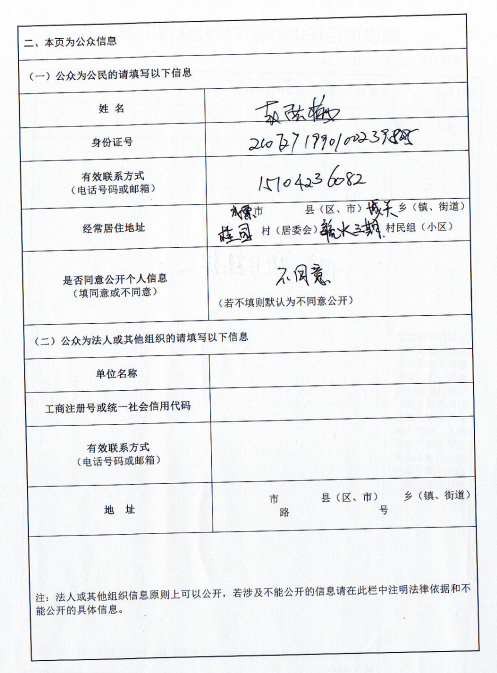 二、本页为公众信息
（一）公众为公民的请填写以下信息
姓 名
身份证号
有效联系方式
（电话号码或邮箱）
15104236082
经常居住地址
市 县（区、市）城关乡（镇、街道）
桂园村（居委会） 村民组（小区）
是否同意公开个人信息
（填同意或不同意）
不同意
（若不填则默认为不同意公开）
（二）公众为法人或其他组织的请填写以下信息
单位名称
工商注册号或统一社会信用代码
有效联系方式
（电话号码或邮箱）
地 址
市 县（区、市） 乡（镇、街道）
路 号
注：法人或其他组织信息原则上可以公开，若涉及不能公开的信息请在此栏中注明法律依据和不
能公开的具体信息。